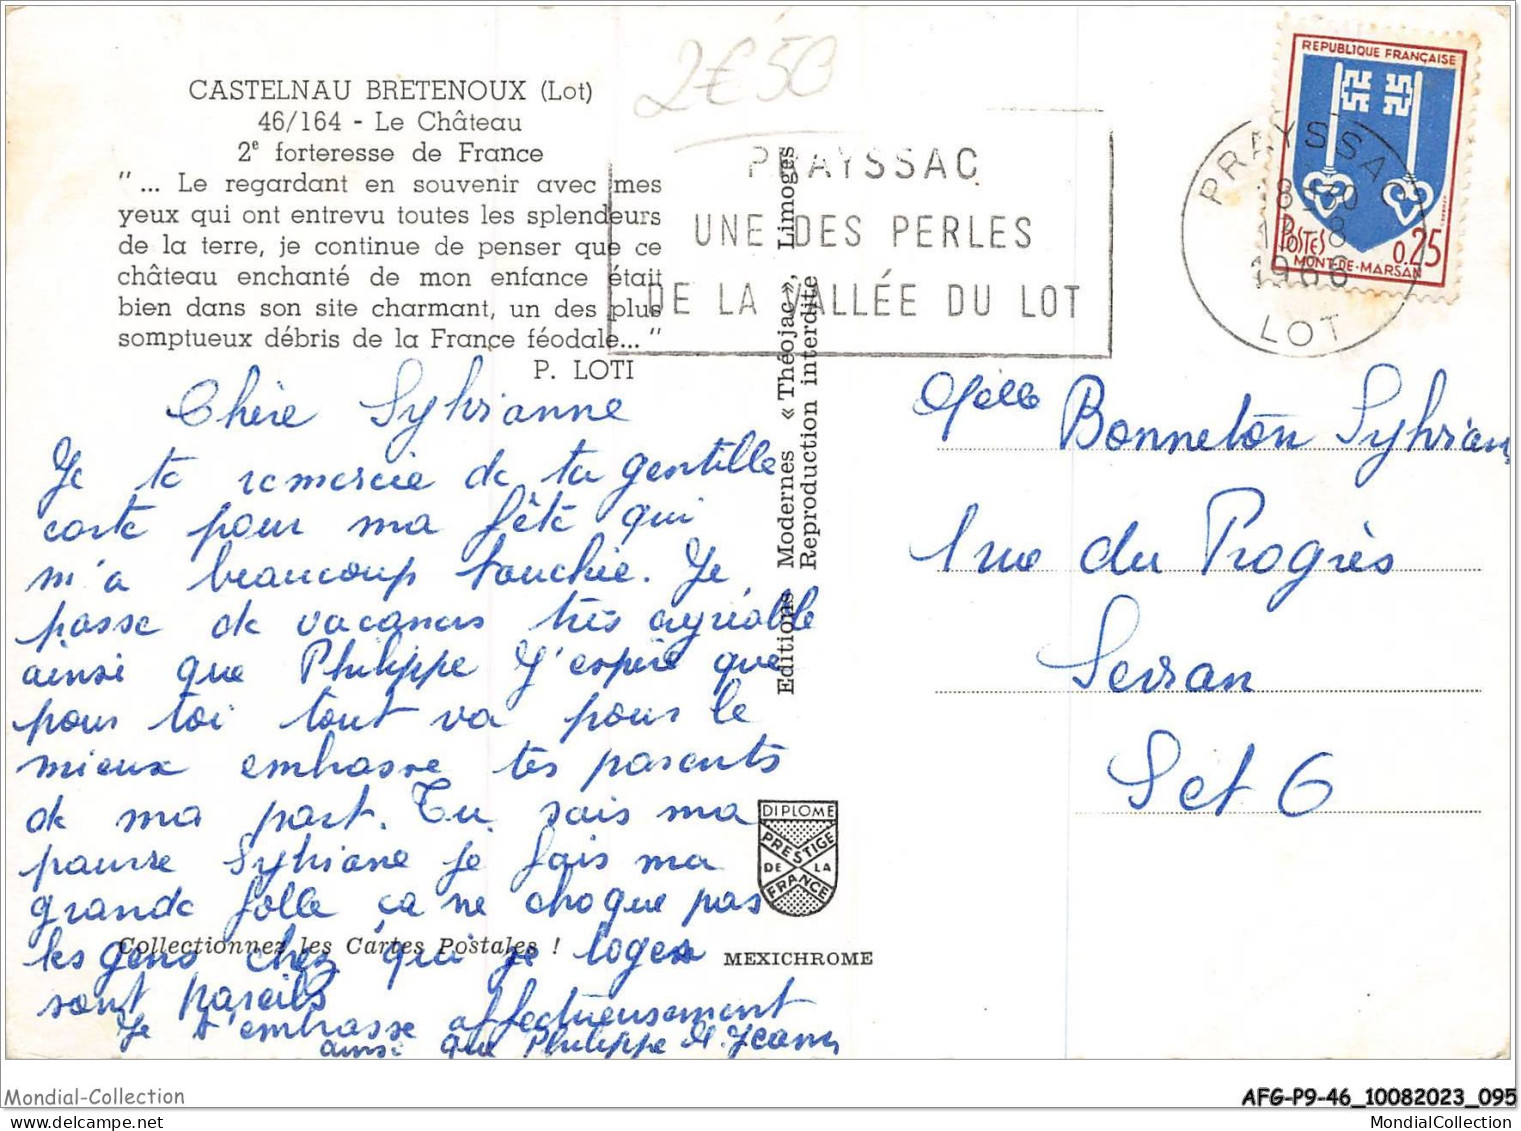 CASTELNAU BRETENOUX (Lot)
46/164 - Le Château
2e forteresse de France
"... Le regardant en souvenir avec mes
yeux qui ont entrevu toutes les splendeurs
de la terre, je continue de penser que ce
château enchanté de mon enfance était
bien dans son site charmant, un des plus
somptueux débris de la France féodale... "
P. LOTI
2€50
PRAYSSAC
UNE DES PERLES
DE LA VALLÉE DU LOT
REPUBLIQUE FRANÇAISE
POSTES
0.25
MONT-DE-MARSAN
PRAYSSAC
8H30
8
1966
LOT
Editions Modernes « Théojac », Limoges
Reproduction interdite
Chère Sylvianne
Je te remercie de ta gentille
carte pour ma fête qui
m'a beaucoup touchée. Je
passe de vacances très agréable
ainsi que Philippe J'espère que
pour toi tout va pour le
mieux embrasse tes parents
de ma part. Tu sais ma
pauvre Sylviane je fais ma
grande folle ça ne choque pas
les gens chez qui je loge
sont pareils
Je t'embrasse affectueusement
ainsi que Philippe M. Jeanny
Melle Bonneton Sylvian
1 rue du Progrès
Sevran
Set 6
DIPLOME
PRESTIGE
DE LA
FRANCE
Collectionnez les Cartes Postales !
MEXICHROME
Mondial-Collection
AFG-P9-46_10082023_095
MondialCollection